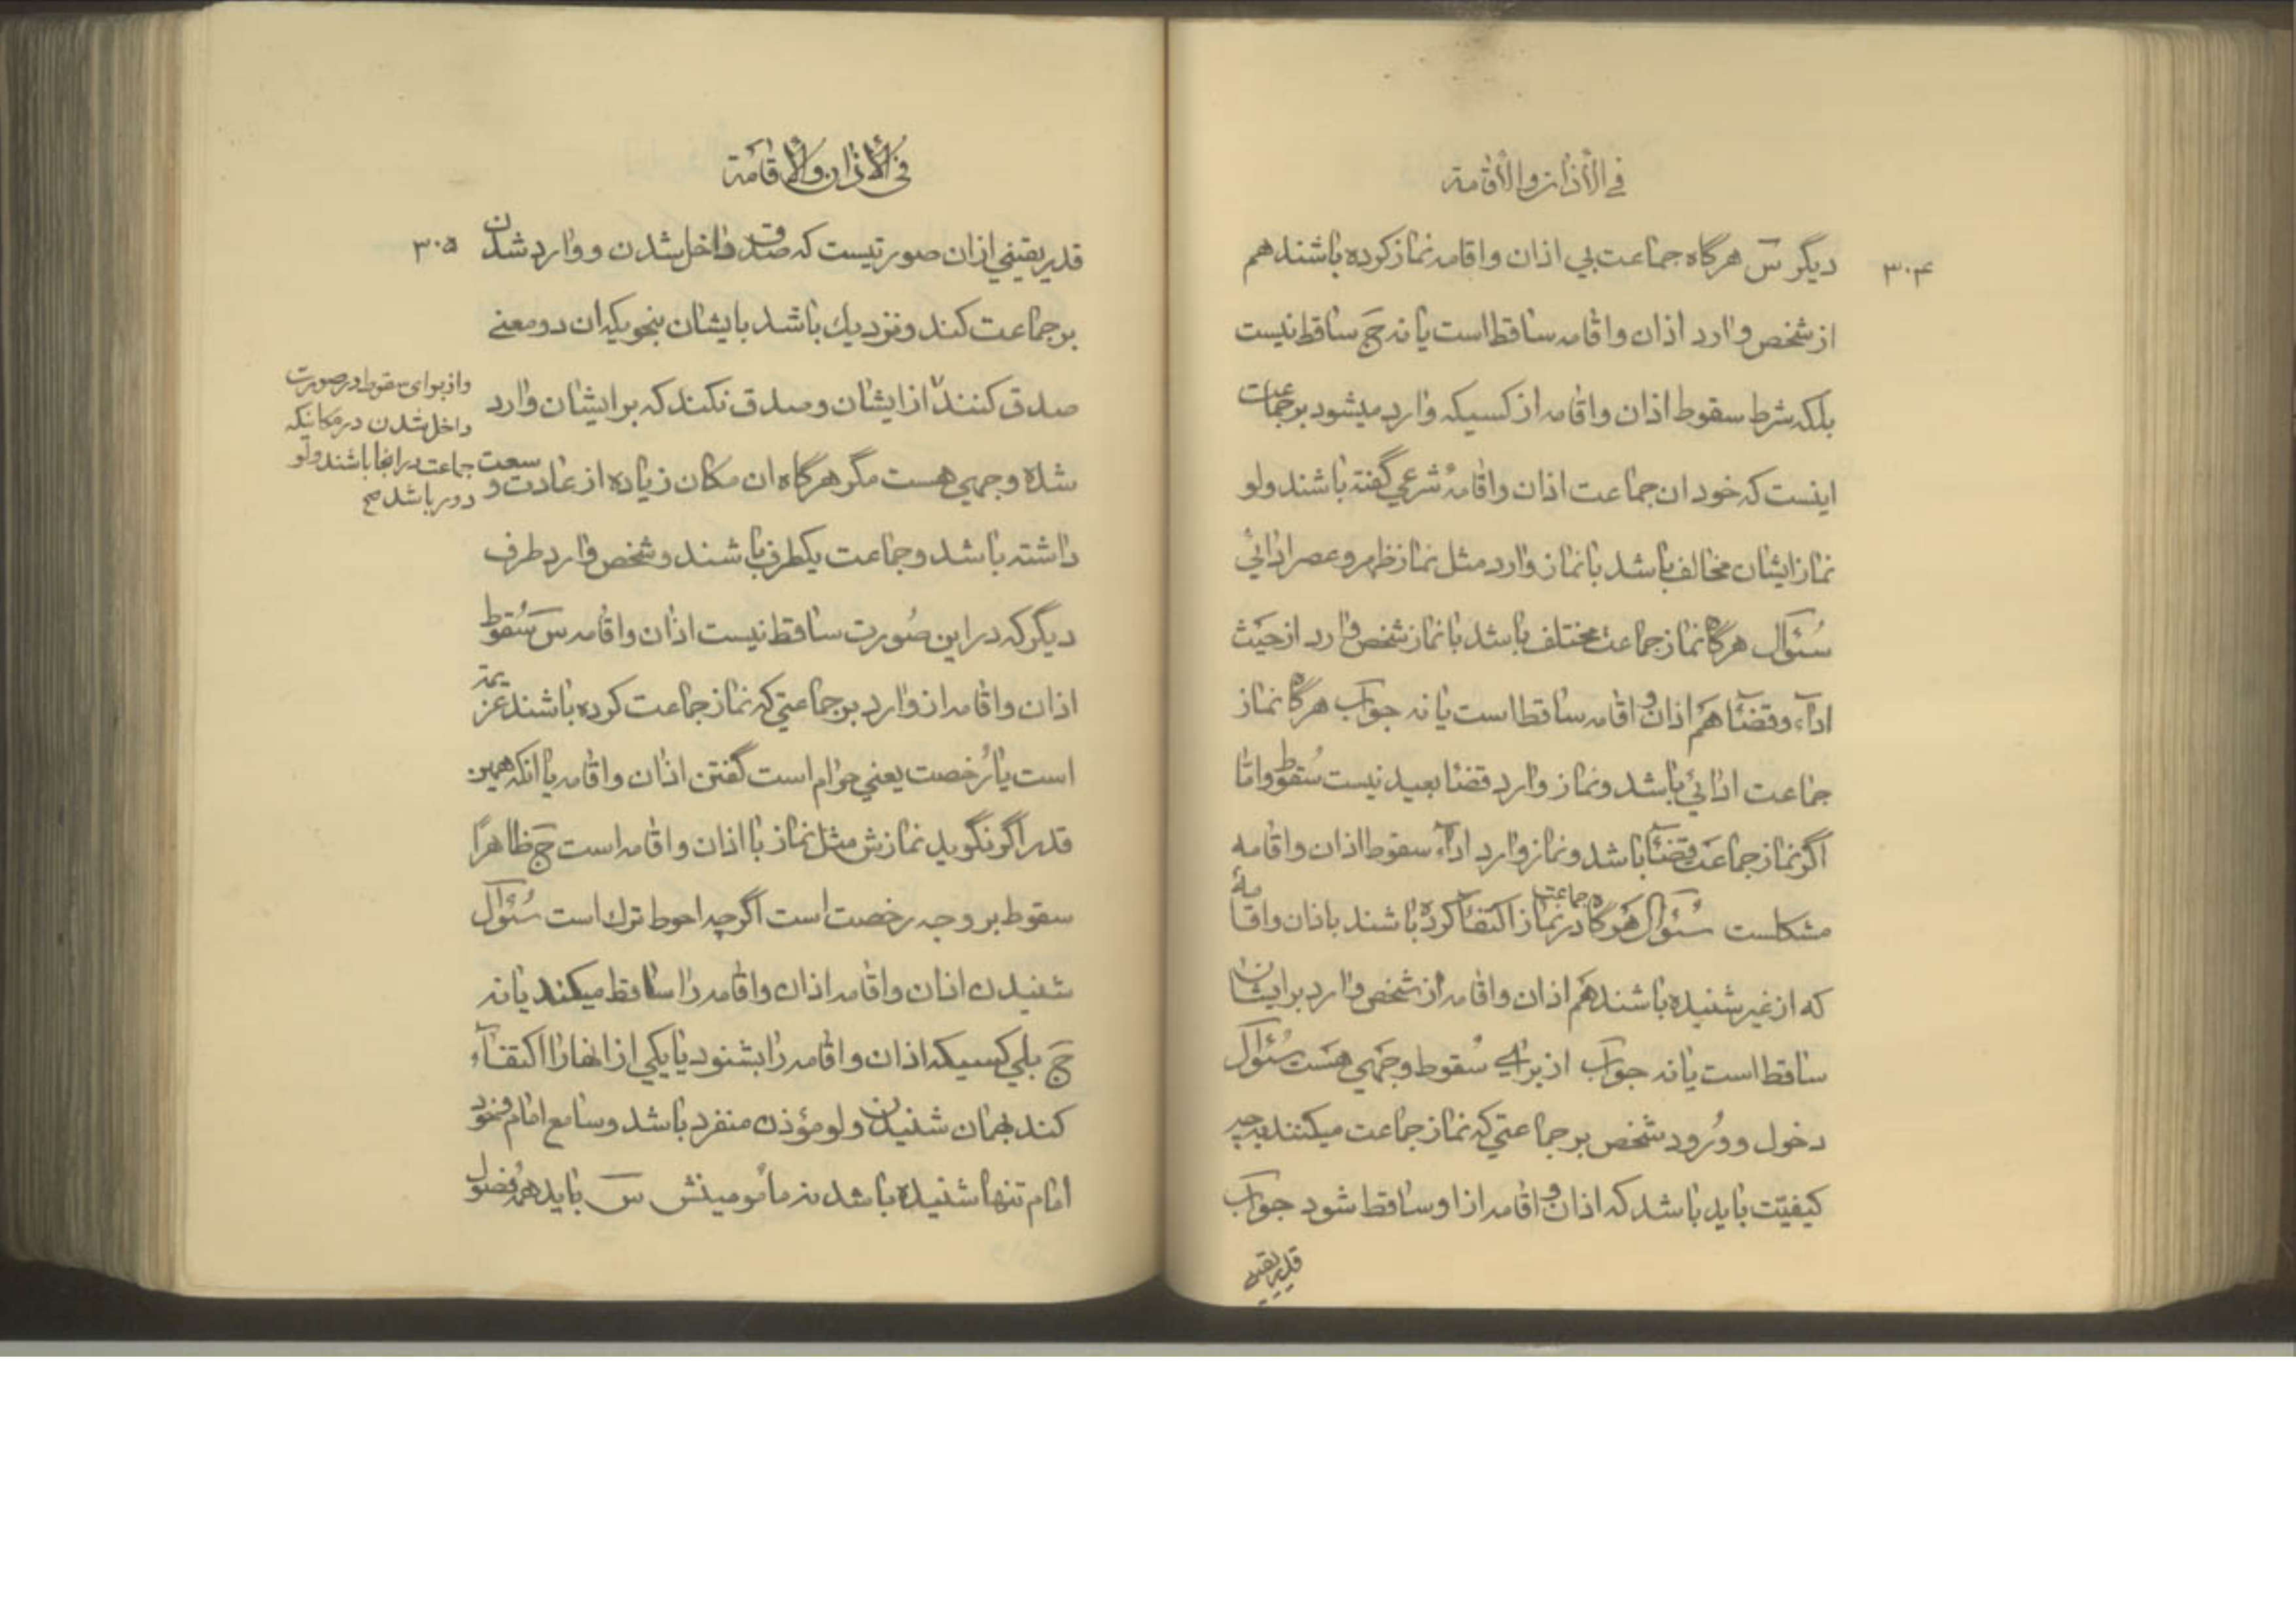 في الأذان والأقامة
۳۰۴
دیگر س هرگاه جماعت بي اذان واقامه نماز کرده باشند هم
از شخص وارد اذان واقامه ساقط است یا نه ج ساقط نیست
بلکه شرط سقوط اذان واقامه از کسیکه وارد میشود بر جماعت
اینست که خود ان جماعت اذان واقامهٔ شرعي گفته باشند ولو
نماز ایشان مخالف باشد با نماز وارد مثل نماز ظهر وعصر ادائي
سُئوال هرگاه نماز جماعت مختلف باشد با نماز شخص وارد از حَیث
اداء وقضآء هَم اذان و اقامه ساقط است یا نه جواب هرگاه نماز
جماعت ادائي باشد ونماز وارد قضا بعید نیست سُقوط وامّا
اگر نماز جماعَت قضآء باشد ونماز وارد ادآء سقوط اذان واقامه
مشکلست سُئوال هَرگاه در نماز جماعت اکتفآء کرده باشند باذان واقامهٔ
که از غیر شنیده باشند هَم اذان واقامه از شخص وارد بر ایشان
ساقط است یا نه جواب از برای سُقوط وجَهي هَست سُئوال
دخول ووُرود شخص بر جماعتي که نماز جماعت میکنند بچه
کیفیّت باید باشد که اذان و اقامه از او ساقط شود جواب
قدر یقیني
في الأذان والأقامَة
۳۰۵
قدر یقیني از ان صورتیست که صدق داخل شدن و وارد شدن
بر جماعت کند ونزدیك باشد بایشان بنحویکه ان دو معنے
صدق کنند از ایشان وصدق نکند که بر ایشان وارد
واز برای سقوط در صورت
داخل شدن در مکانیکه
جماعت در انجا باشند ولو
دور باشد صح
شده وجهي هست مگر هرگاه ان مکان زیاده از عادت وسعت
داشته باشد وجماعت یکطرف باشند وشخص وارد طرف
دیگر که در این صُورت ساقط نیست اذان واقامه س سُقوط
اذان واقامه از وارد بر جماعتي که نماز جماعت کرده باشند عزیمة
است یا رُخصت یعني حرام است گفتن اذان واقامه یا انکه همین
قدر اگر نگوید نمازش مثل نماز با اذان واقامه است ج ظاهرًا
سقوط بر وجه رخصت است اگرچه احوط ترك است سُئوال
شنیدن اذان واقامه اذان واقامه را ساقط میکند یا نه
ج بلي کسیکه اذان واقامه را بشنود یا یکي از انها را اکتفآء
کند بهمان شنیدن ولو مؤذن منفرد باشد وسامع امام وخود
امام تنها شنیده باشد نه مأمومینش س باید همه فُصُول